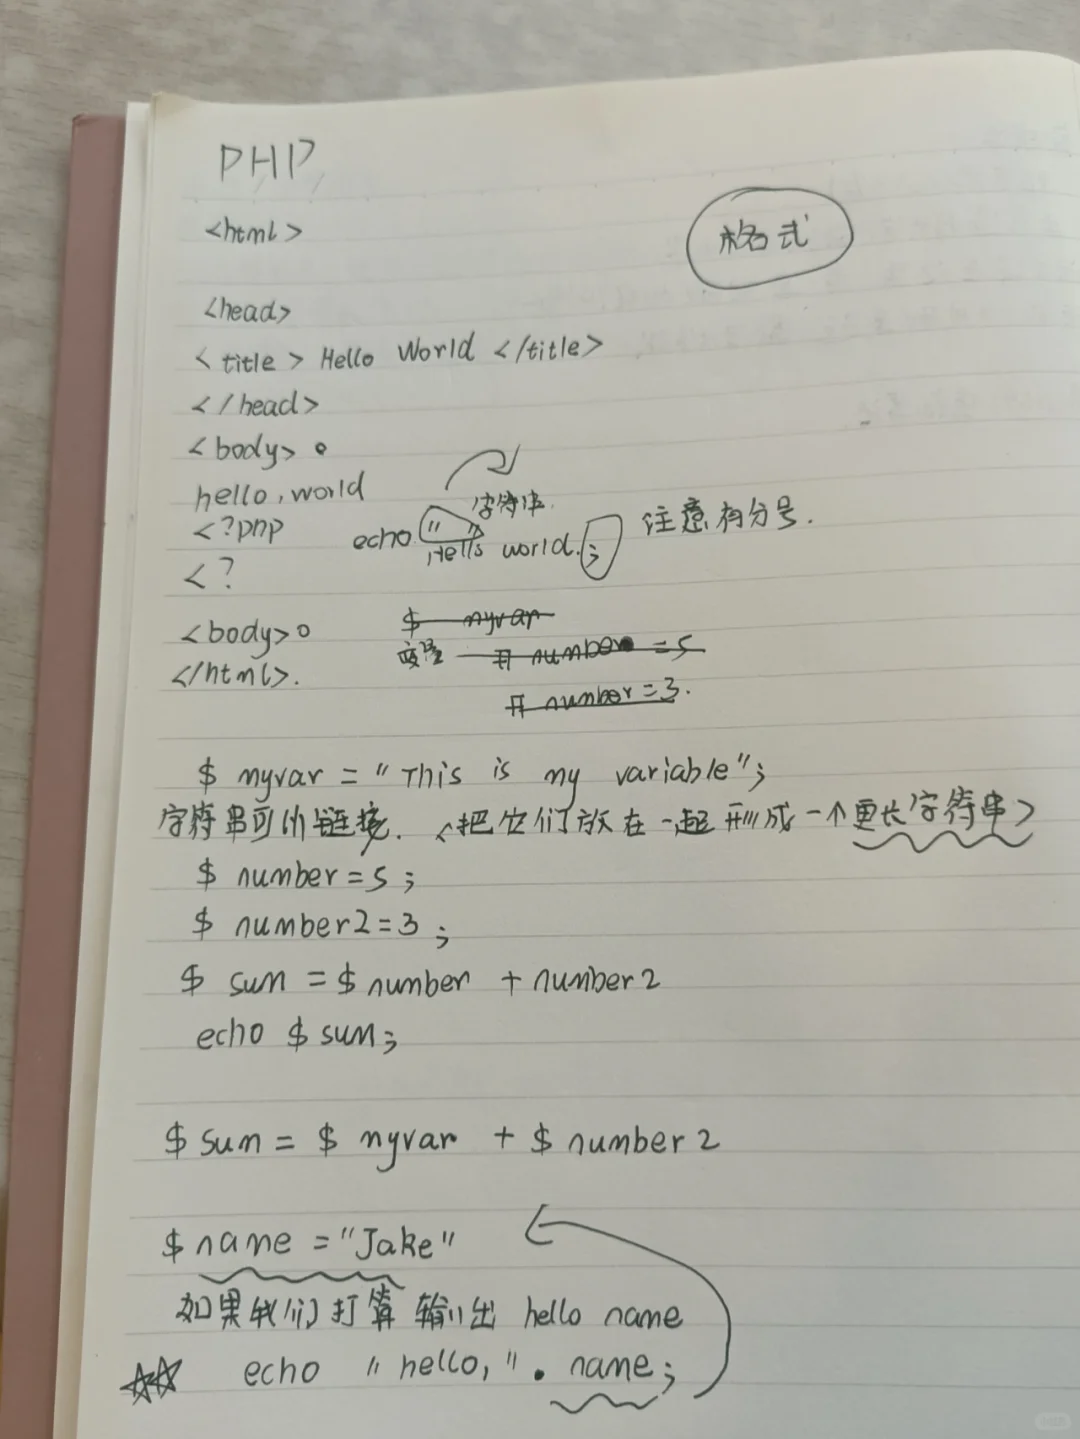 PHP
<html>
格式
<head>
<title> Hello World </title>
</head>
<body>
hello, world
字符串
<?php
echo " " Hello world. ; 注意有分号.
<?
<body>
$ myvar
</html>.
变量 # number = 5
# number = 3.
$ myvar = "This is my variable";
字符串可以链接. <把它们放在一起形成一个更长字符串>
$ number = 5 ;
$ number2 = 3 ;
$ sum = $ number + number2
echo $ sum;
$ sum = $ myvar + $ number2
$ name = "Jake"
如果我们打算输出 hello name
echo "hello," . name;